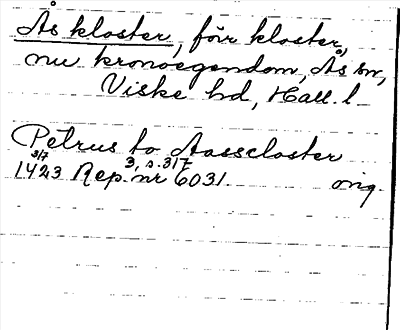 Ås kloster, förr kloster,
nu kronoegendom, Ås sn,
Viske hd, Hall. l
Petrus to Aasscloster
3/7 3, s. 317
1423 Rep. nr 6031. orig